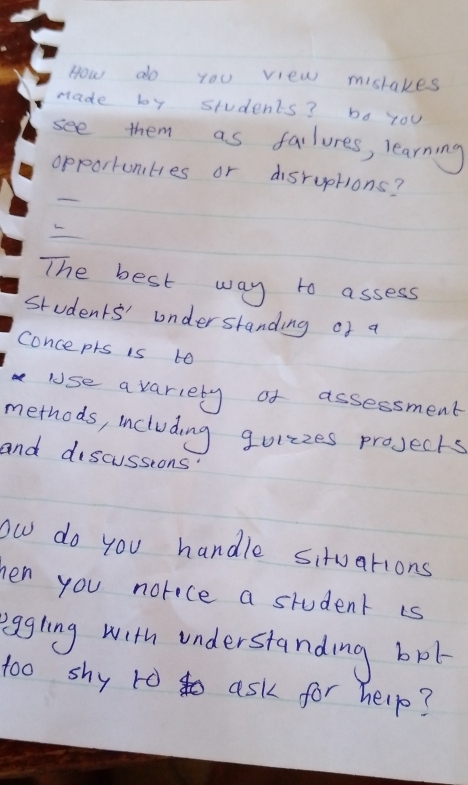 How do you view mistakes
Made by students? Do you
see them as failures, learning
opportunities or disruptions?
—
=
The best way to assess
Students' understanding of a
Concepts is to
* Use a variety of assessment
methods, including quizzes projects
and discussions.
ow do you handle situations
hen you notice a student is
uggling with understanding but
too shy to to ask for help?